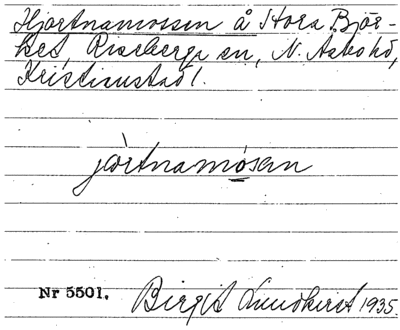 Hjortnamossen å Stora Björ-
ket, Riseberga sn, N. Åsbo hd,
Kristianstad l.
jòrtnamósan
Nr 5501. Birgit Lundkvist 1935.